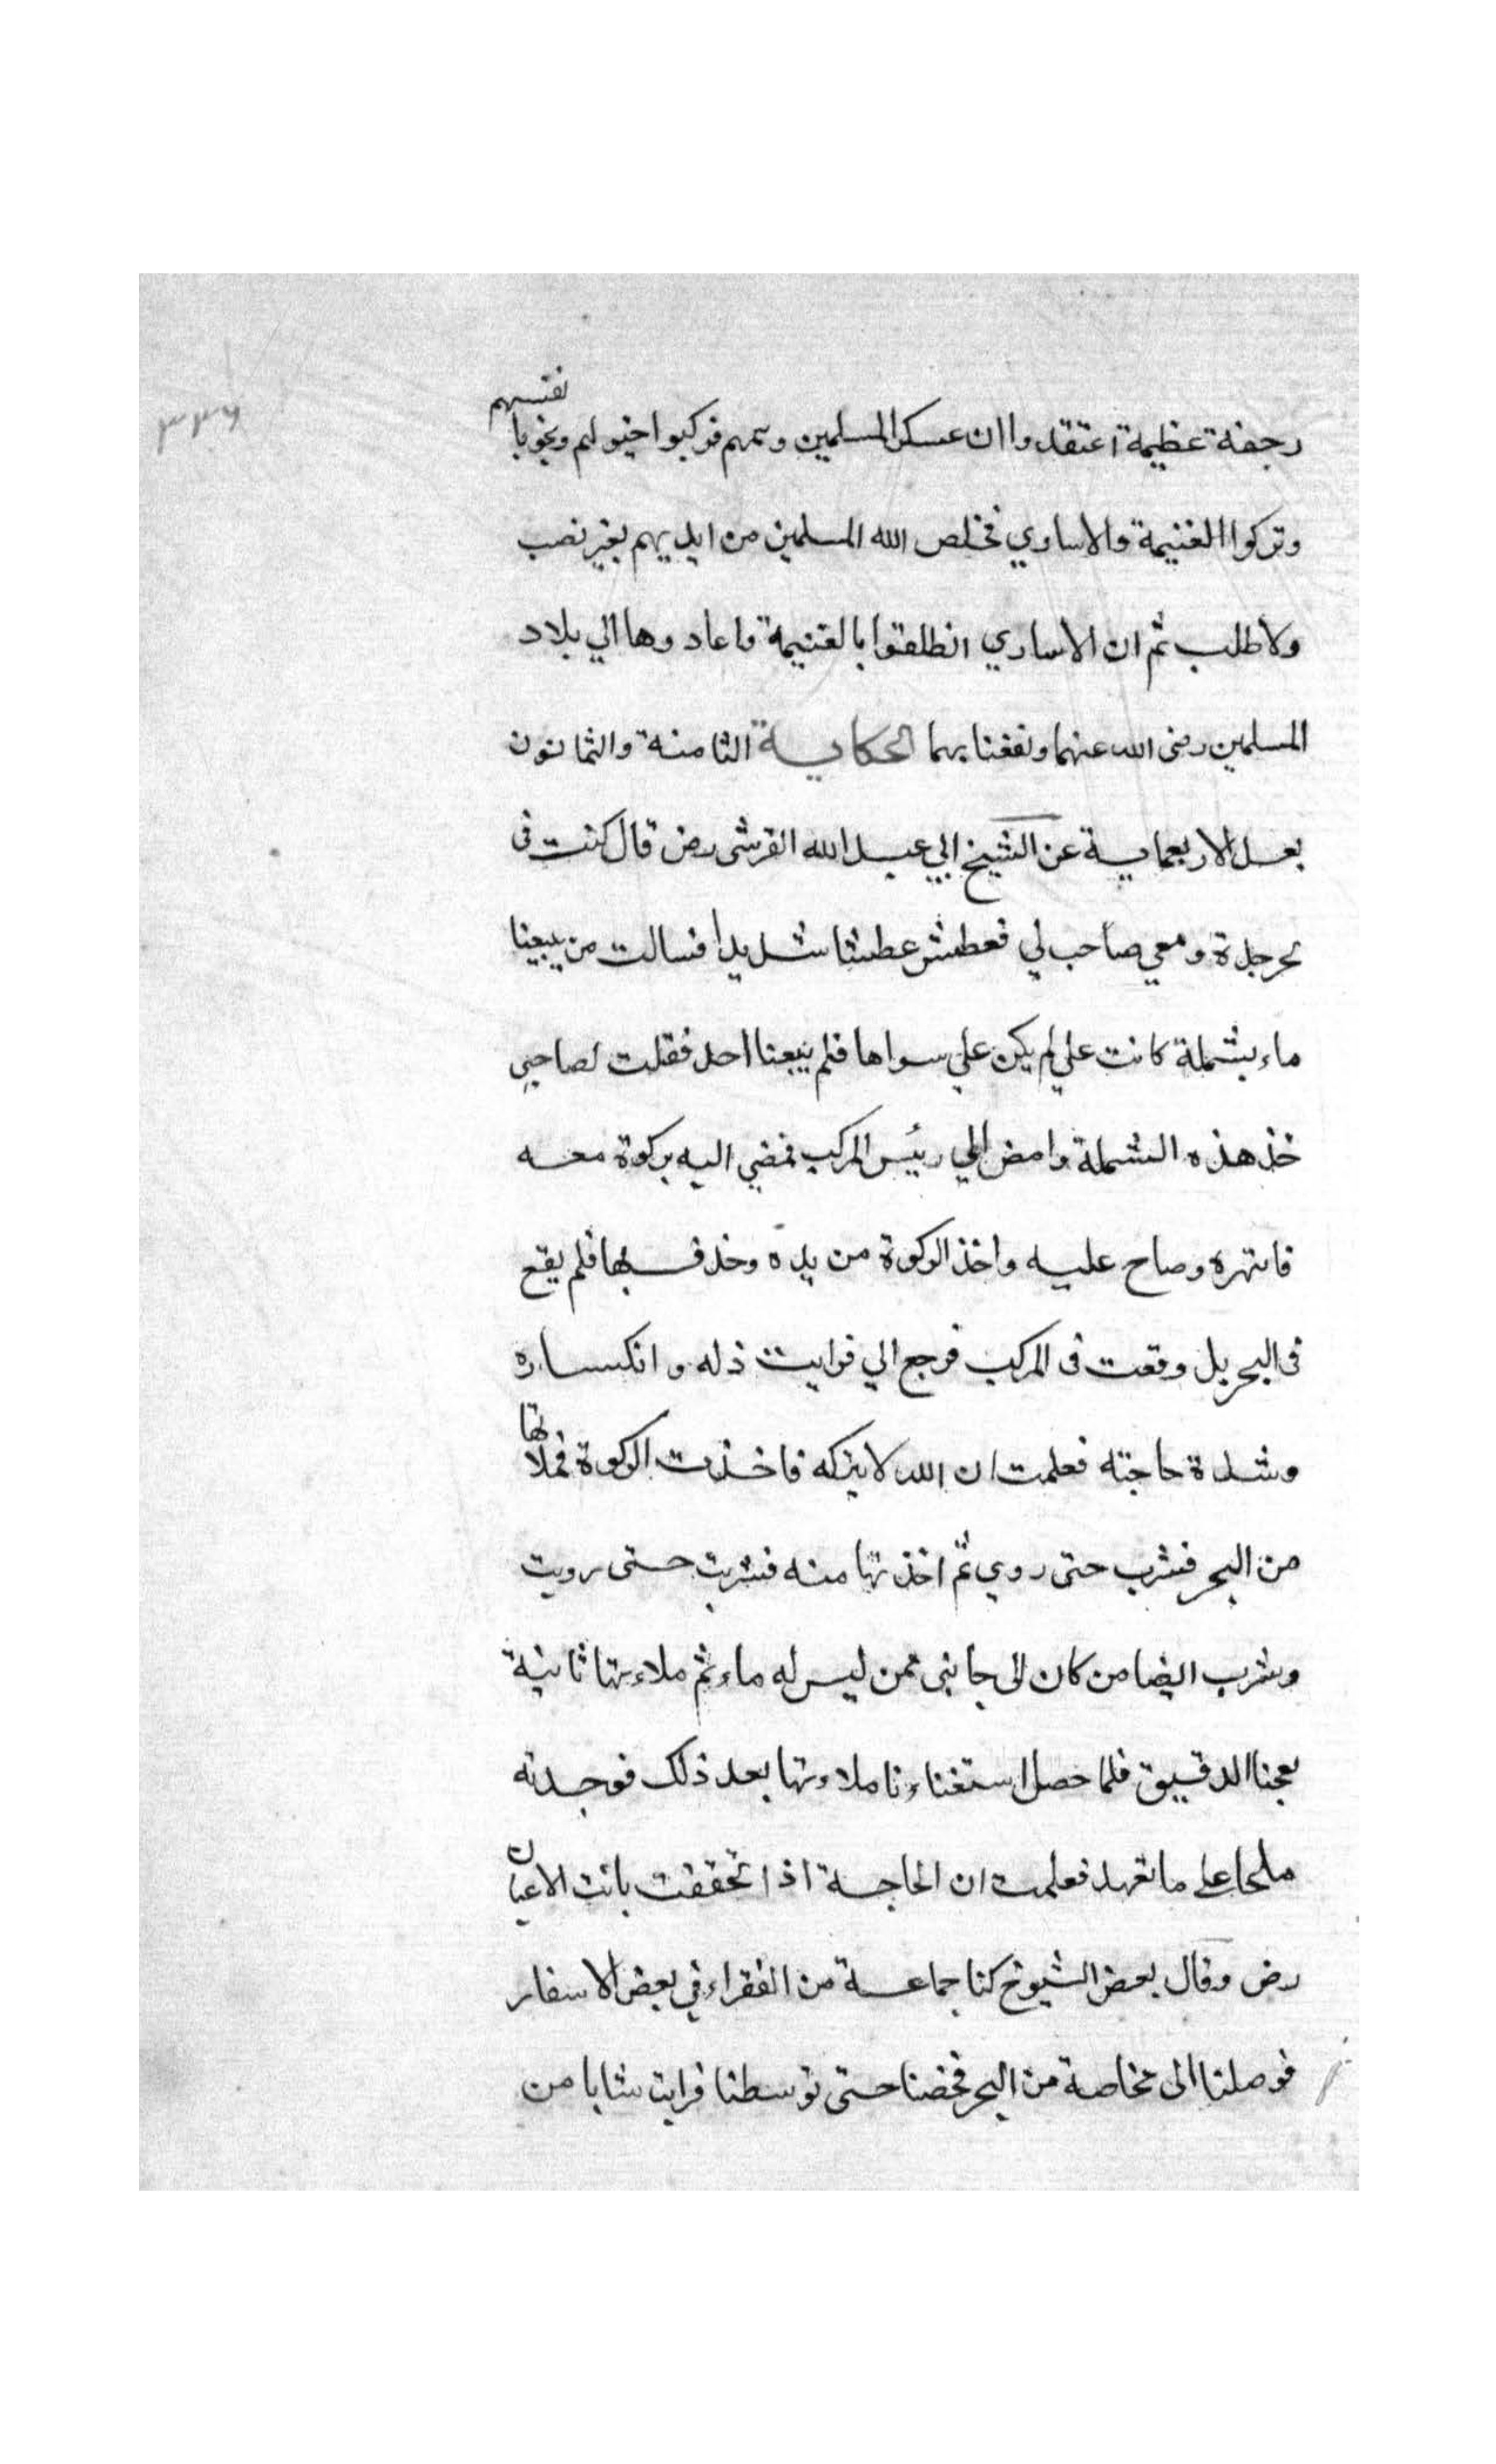 ٣٣٦
رجفة عظيمة اعتقدوا ان عسكر المسلمين وسمهم فركبوا خيولهم ونجوا بانفسهم
وتركوا الغنيمة والاساري فخلص الله المسلمين من ايديهم بغير نصب
ولا طلب ثم ان الاساري انطلقوا بالغنيمة فاعادوها الي بلاد
المسلمين رضى الله عنهما ونفعنا بهما الحكاية الثامنة والثمانون
بعد الاربعماية عن الشيخ ابي عبد الله القرشى رض قال كنت فى
بحر جدة ومعي صاحب لي فعطش عطشا شديدا فسالت من يبيعنا
ماء بشملة كانت علي لم يكن علي سواها فلم يبعنا احد فقلت لصاحبي
خذ هذه الشملة وامض الي رئيس المركب فمضي اليه بركوة معه
فانتهره وصاح عليه واخذ الركوة من يده وحذف بها فلم يقع
فى البحر بل وقعت فى المركب فرجع الي فرايت ذله وانكساره
وشدة حاجته فعلمت ان الله لا يتركه فاخذت الركوة فملاتها
من البحر فشرب حتى روي ثم اخذتها منه فشربت حتى رويت
وشرب ايضا من كان الى جانبى ممن ليس له ماء ثم ملاءتها ثانية
بعجنا الدقيق فلما حصل استغناءنا ملاءتها بعد ذلك فوجدته
ملحا على ما نعهد فعلمت ان الحاجة اذا تحققت بانت الاعيان
رض وقال بعض الشيوخ كنا جماعة من الفقراء في بعض الاسفار
فوصلنا الى مخاصة من البحر فخضنا حتى توسطنا فرايت شابا من